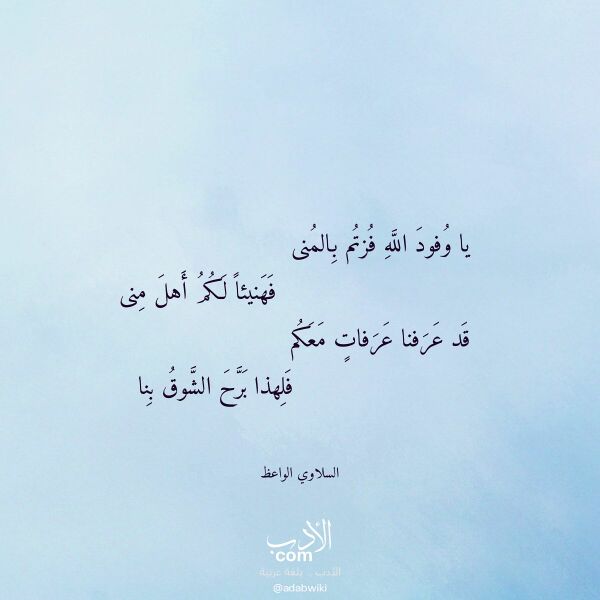 يا وُفودَ اللَّهِ فُزتُم بِالمُنى
فَهَنيئاً لَكُمُ أَهلَ مِنى
قَد عَرَفنا عَرَفاتٍ مَعَكُم
فَلِهذا بَرَّحَ الشَّوقُ بِنا
السلاوي الواعظ
الأدب
com
الأدب .. بلغة عربية
@adabwiki